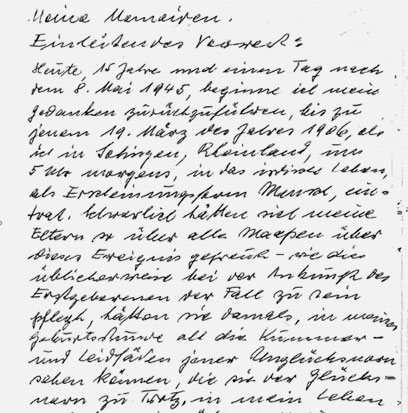 Meine Memoiren.
Einleitendes Vorwort:
Heute, 15 Jahre und einen Tag nach
dem 8. Mai 1945, beginne ich meine
Gedanken zurückzuführen, bis zu
jenem 19. März des Jahres 1906, als
ich in Solingen, Rheinland, um
5 Uhr morgens, in das irdische Leben,
als Erscheinungsform Mensch, ein-
trat. Schwerlich hätten sich meine
Eltern so über alle Maaßen über
dieses Ereignis gefreut - wie dies
üblicherweise bei der Ankunft des
Erstgeborenen der Fall zu sein
pflegt, hätten sie damals, in meiner
Geburtsstunde all die Kummer-
und Leidfäden jener Unglücksnorn
sehen können, die sie der Glücks-
norn zu Trotz, in mein Leben